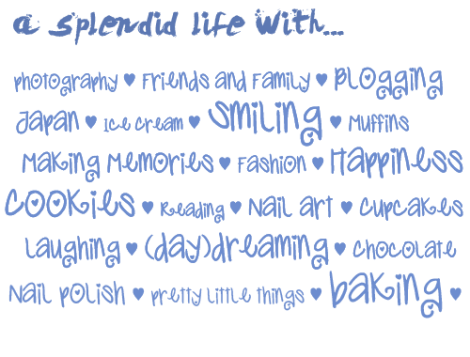 a splendid life with...
photography ♥ Friends and Family ♥ Blogging
Japan ♥ Ice cream ♥ Smiling ♥ Muffins
Making Memories ♥ Fashion ♥ Happiness
Cookies ♥ Reading ♥ Nail art ♥ Cupcakes
Laughing ♥ (day)dreaming ♥ Chocolate
Nail polish ♥ pretty little things ♥ baking ♥